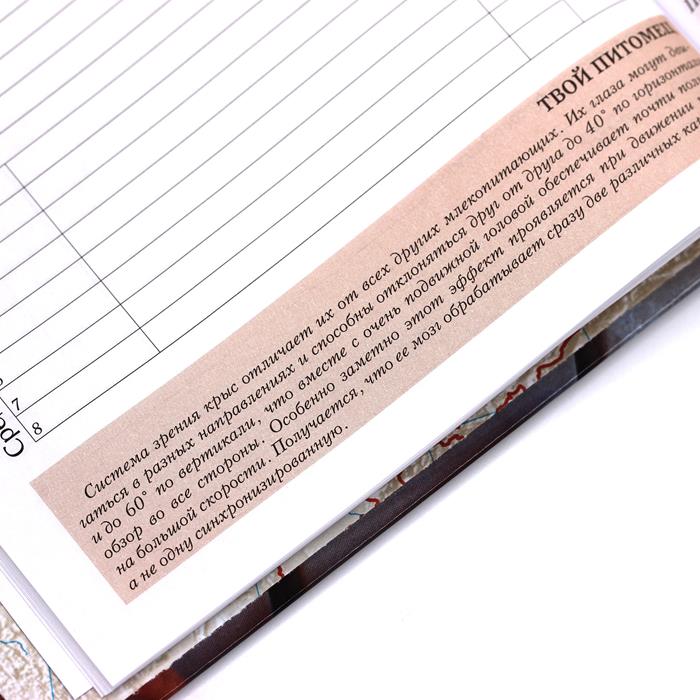 ТВОЙ ПИТОМЕЦ
Система зрения крыс отличает их от всех других млекопитающих. Их глаза могут дви-
гаться в разных направлениях и способны отклоняться друг от друга до 40° по горизонтали
и до 60° по вертикали, что вместе с очень подвижной головой обеспечивает почти
обзор во все стороны. Особенно заметно этот эффект проявляется при движении
на большой скорости. Получается, что ее мозг обрабатывает сразу две различных
а не одну синхронизированную.
7
8